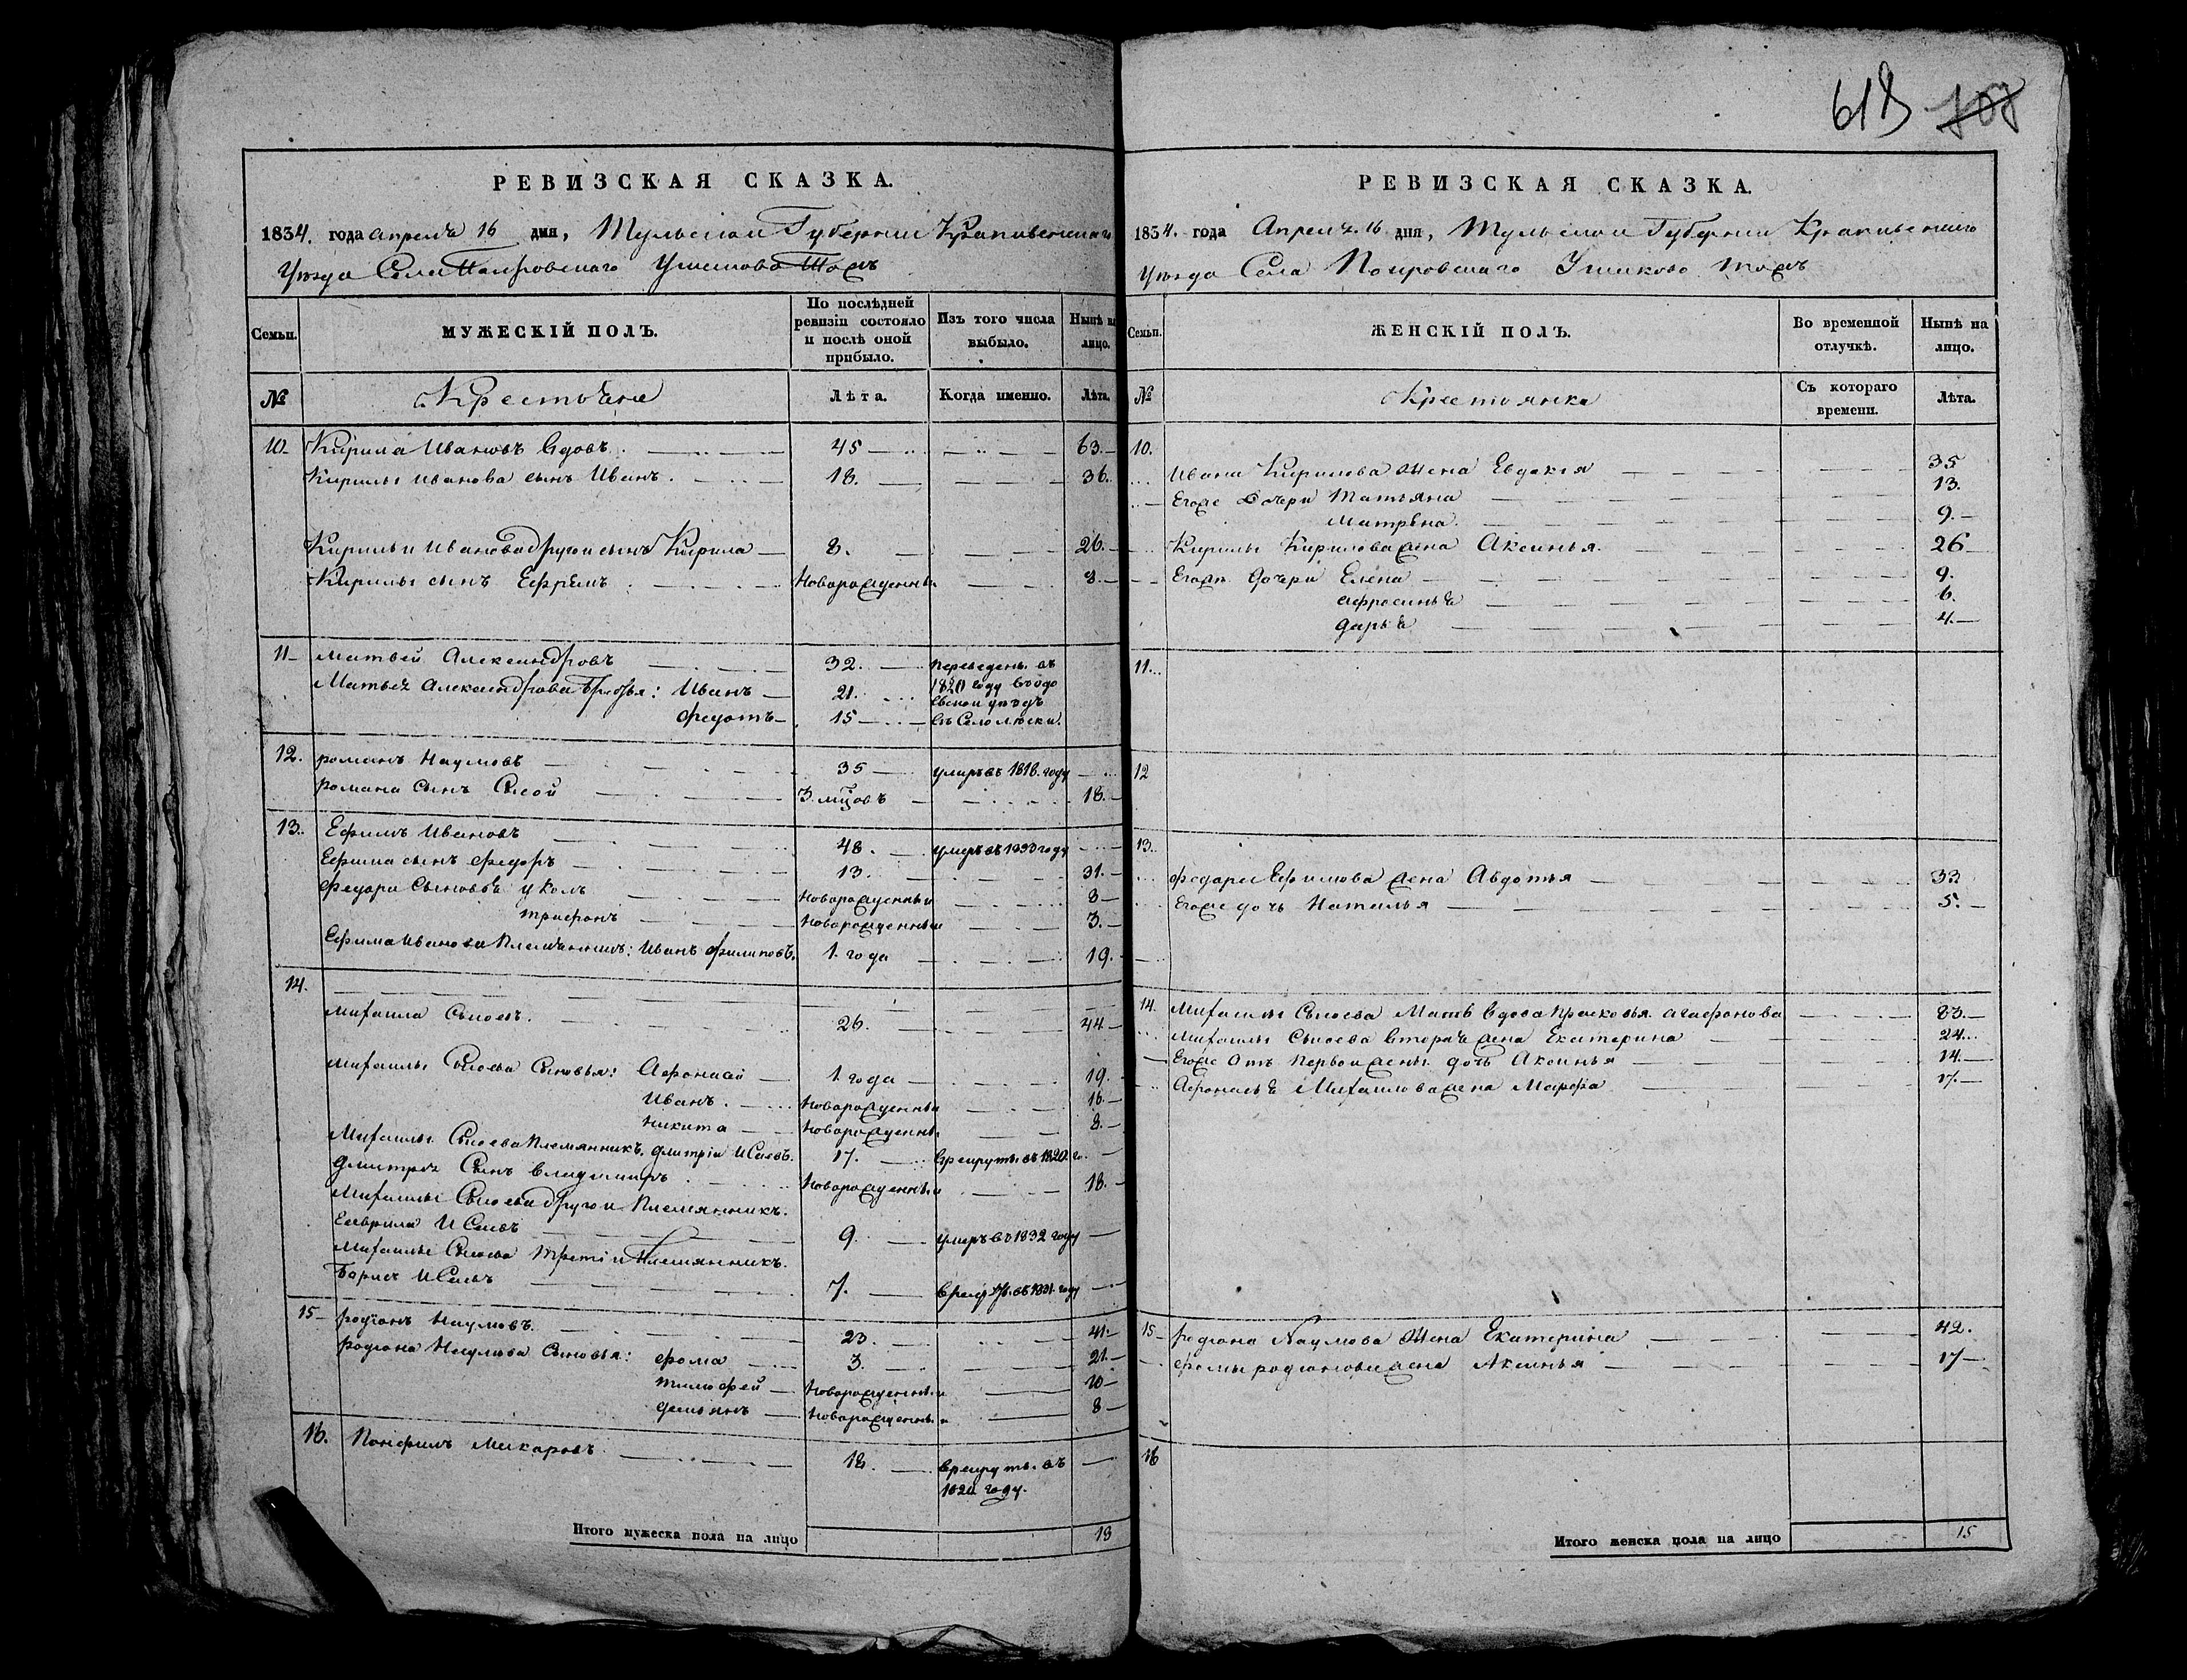 618
РЕВИЗСКАЯ СКАЗКА.
1834. года апреля 16 дня, Тульской Губернии Крапивенскаго
Уѣзда Села Покровскаго Ушаково тожъ
Семьи. МУЖЕСКІЙ ПОЛЪ. По послѣдней ревизіи состояло и послѣ оной прибыло. Изъ того числа выбыло. Нынѣ на лицо.
№ Крестьяне Лѣта. Когда именно. Лѣта.
10. Кирила Ивановъ вдовъ. 45 63.
Кирилы Иванова сынъ Иванъ. 18. 36.
Кирилы Иванова другой сынъ Кирила 8. 26.
Кирилы сынъ Ефремъ новорожденный 3.
11 Матвей Александровъ 32. переведены въ
Матвея Александрова братья: Иванъ 21. 1820 году въ Одо
евской уѣздъ
Федотъ 15 въ Село
12. романъ Наумовъ 35 умеръ въ 1818. году
романа сынъ Сысой 3. мцовъ 18.
13. Ефимъ Ивановъ 48. умеръ въ 1830 году
Ефима сынъ Федоръ 13. 31.
Федора сыновья новорожденный 8
трифонъ новорожденный 3.
Ефима Иванова племянникъ: Иванъ Филиповъ. 1. года 19.
14.
Михаила Сысоевъ. 26. 44
Михаилы Сысоева сыновья: Афонасий 1. года 19.
Иванъ. новорожденный 16.
Никита новорожденный 8.
Михаилы Сысоева племянникъ. дмитрій Исаевъ. 17. врекруты въ 1820. г.
дмитрея сынъ владимиръ новорожденный 18.
Михаилы Сысоева другой племянникъ.
Гаврила Исаевъ 9. умеръ въ 1832 году
Михаилы Сысоева третій племянникъ.
Борисъ Исаевъ 7. врекруты въ 1831. году
15 родіонъ Наумовъ. 23. 41.
родіона Наумова сыновья: Фома 3. 21.
тимофей новорожденный 10
демьянъ новорожденный 8
16. Панфилъ Макаровъ. 18. врекруты въ
1820 году.
Итого мужеска пола на лицо 13
РЕВИЗСКАЯ СКАЗКА.
1834. года Апреля 16 дня, Тульской Губернии Крапивенскаго
Уѣзда Села Покровскаго Ушаково тожъ
Семьи. ЖЕНСКІЙ ПОЛЪ. Во временной отлучкѣ. Нынѣ на лицо.
№ Крестьянки Съ котораго времени. Лѣта.
10.
Ивана Кирилова жена Евдокія 35
Егоже дочери Татьяна 13.
Матрена. 9.
Кирилы Кирилова жена Аксинья. 26
Егоже дочери Елена 9.
Афросинья 6.
дарья 4.
11.
12
13.
Федора Ефимова жена Авдотья 33
Егоже дочь Наталья 5.
14. Михаилы Сысоева мать вдова Прасковья Агафонова 83.
Михаилы Сысоева вторая жена Екатерина 24.
Егоже отъ первой жены дочь Аксинья 14.
Афонасья Михайлова жена Марфа 17.
15 родіона Наумова жена Екатерина 42.
Фомы родіонова жена Аксинья 17
16
Итого женска пола на лицо 15